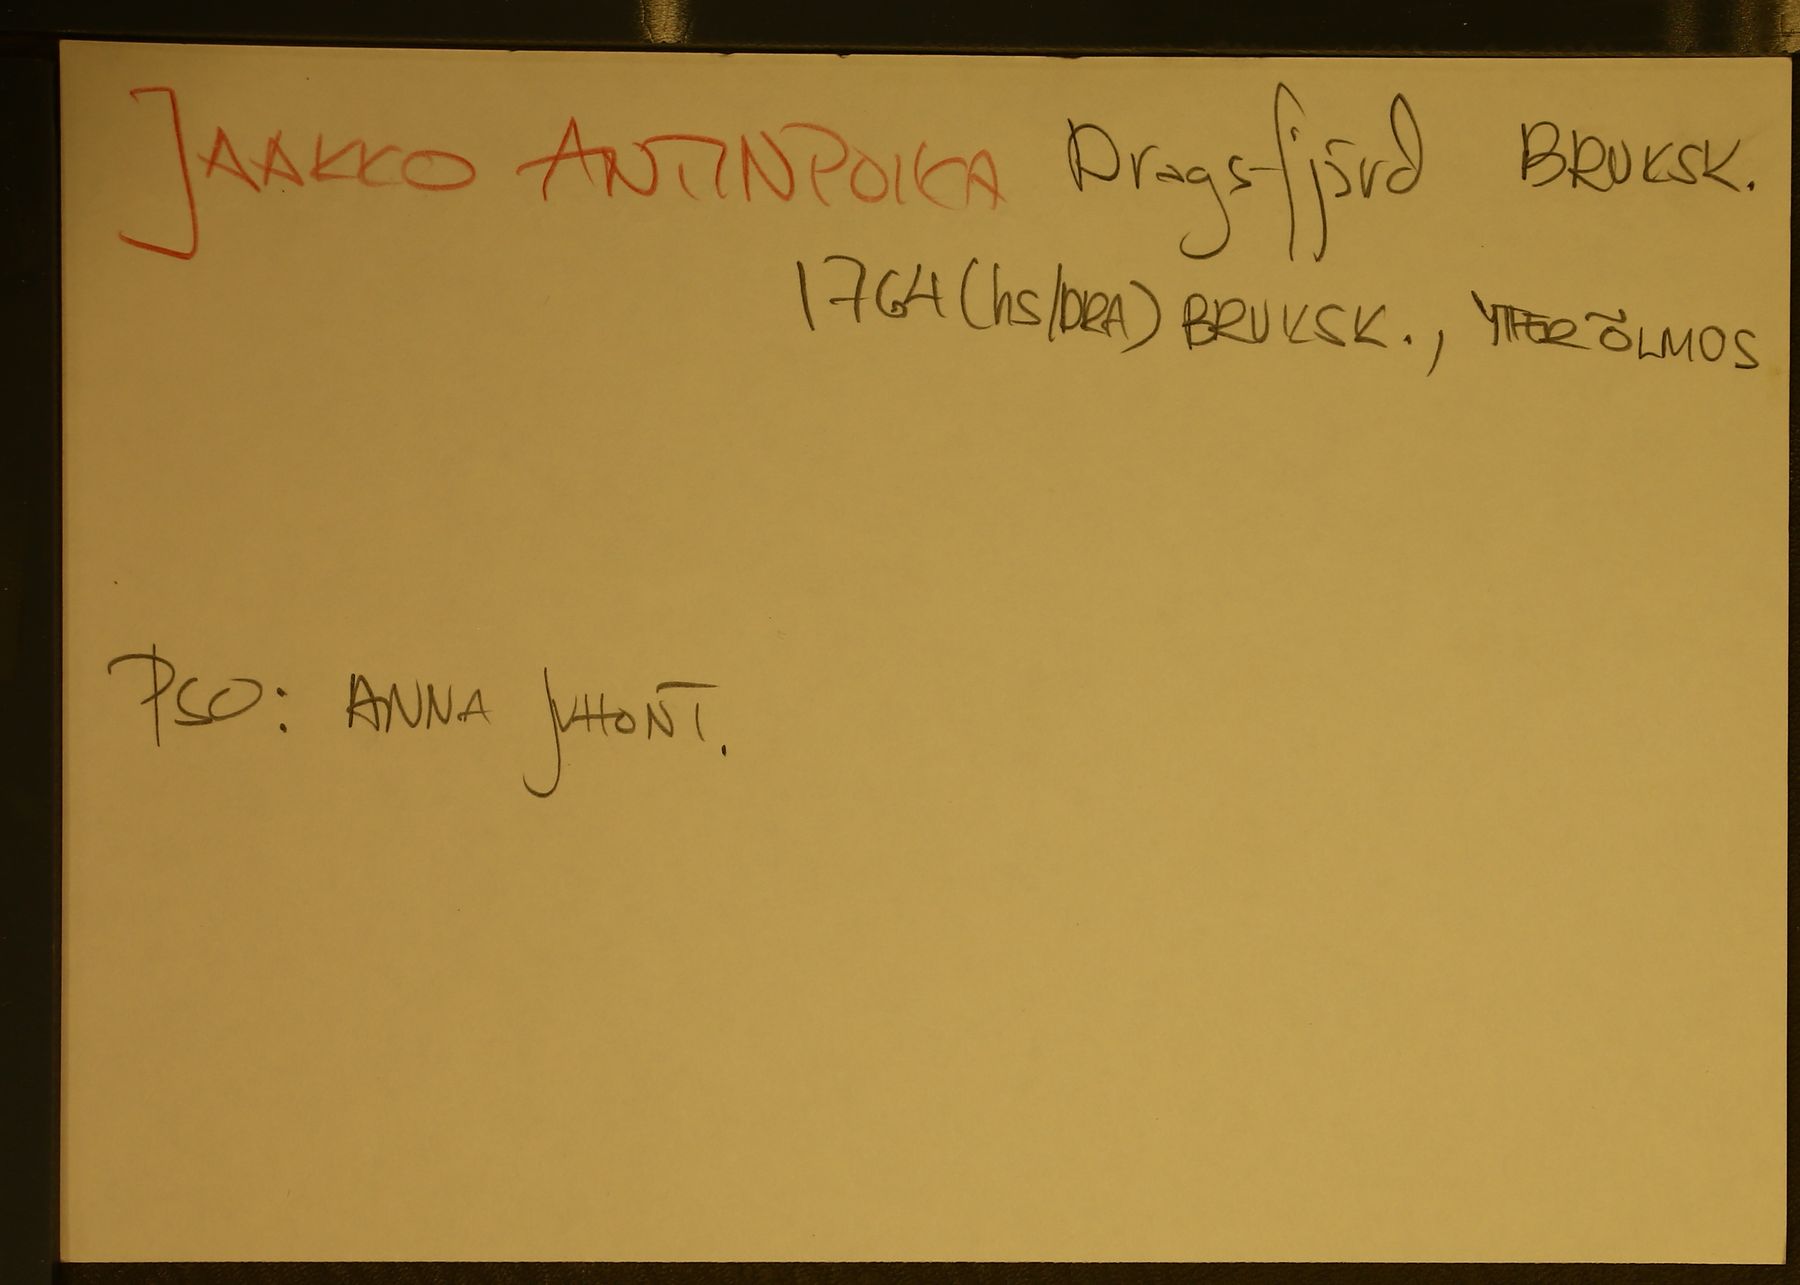 JAAKKO ANTINPOIKA Dragsfjärd BRUKSK.
1764 (hs/DRA) BRUKSK., YTTERÖLMOS
PSO: ANNA JUHONT.